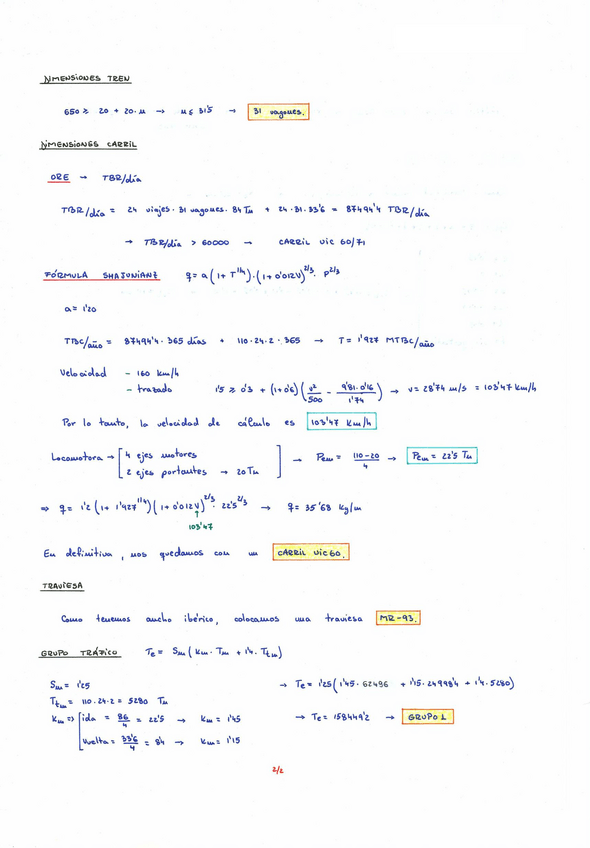 DIMENSIONES TREN
650 ≥ 20 + 20·n → n ≤ 31'5 → 31 vagones.
DIMENSIONES CARRIL
ORE → TBR/día
TBR/día = 24 viajes · 31 vagones · 84 Tn + 24·31·33'6 = 87494'4 TBR/día
→ TBR/día > 60000 → CARRIL UIC 60/71
FÓRMULA SHAJUNIANZ q = a (1 + T^1/4) · (1 + 0'012V)^2/3 · P^2/3
a = 1'20
TBC/año = 87494'4 · 365 días + 110·24·2·365 → T = 1'927 MTBC/año
Velocidad - 160 km/h
- trazado 1'5 ≥ 0'3 + (1+0'6) (v²/500 - 9'81·0'16/1'74) → v = 28'74 m/s = 103'47 km/h
Por lo tanto, la velocidad de cálculo es 103'47 km/h
Locomotora → [4 ejes motores
2 ejes portantes → 20 Tn] → Pem = 110-20/4 → Pem = 22'5 Tn
⇒ q = 1'2 (1 + 1'927^1/4) (1 + 0'012V)^2/3 · 22'5^2/3 → q = 35'68 kg/m
103'47
En definitiva, nos quedamos con un CARRIL UIC 60.
TRAVIESA
Como tenemos ancho ibérico, colocamos una traviesa MR-93.
GRUPO TRÁFICO Te = Sm (km · Tm + 1'4 · Ttm)
Sm = 1'25 → Te = 1'25 (1'45 · 62496 + 1'15 · 24998'4 + 1'4 · 5280)
Ttm = 110·24·2 = 5280 Tn
km ⇒ [ida = 86/4 = 22'5 → km = 1'45 → Te = 158449'2 → GRUPO 1
Vuelta = 33'6/4 = 8'4 → km = 1'15
2/2